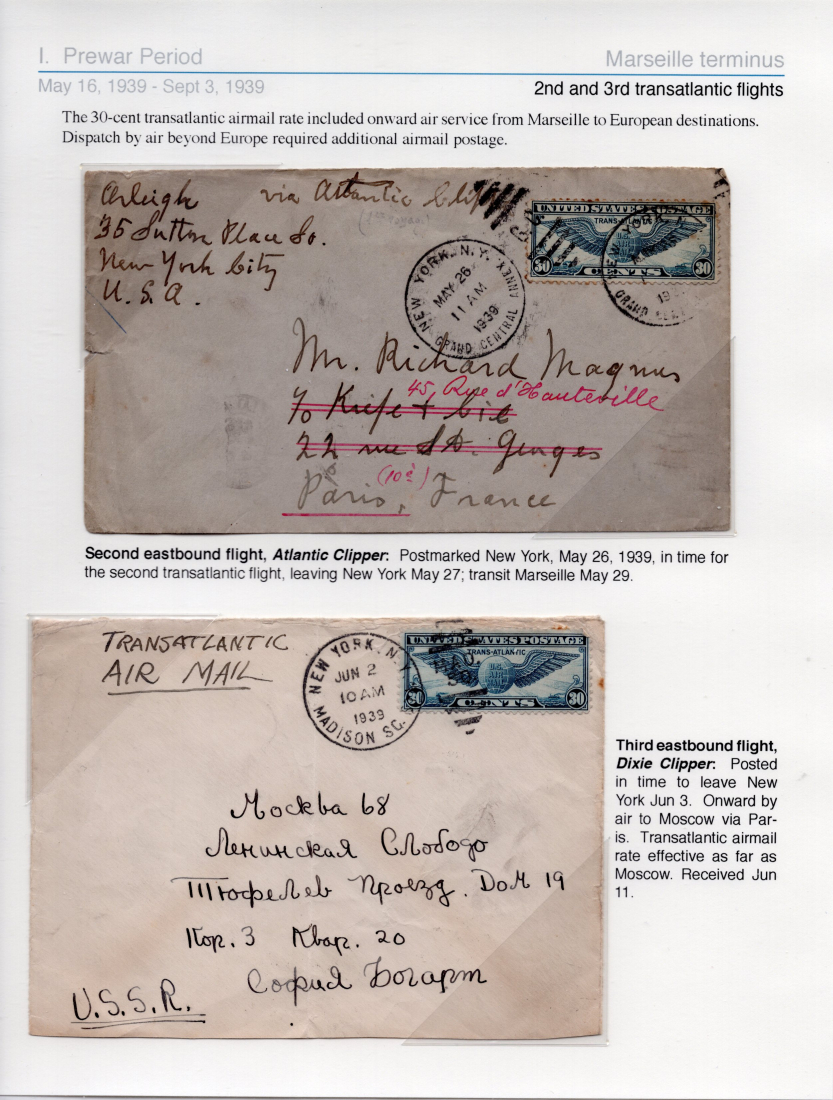 I. Prewar Period
Marseille terminus
May 16, 1939 - Sept 3, 1939
2nd and 3rd transatlantic flights
The 30-cent transatlantic airmail rate included onward air service from Marseille to European destinations.
Dispatch by air beyond Europe required additional airmail postage.
Arleigh
via Atlantic
35 Sutton Place So.
New York City
U.S.A.
NEW YORK, N.Y. ANNEX
MAY 26
11 AM
1939
GRAND CENTRAL
UNITED STATES POSTAGE
TRANS-ATLANTIC
30 CENTS 30
NEW YORK
GRAND
Mr. Richard Magnus
45, Rue d'Hauteville
22 rue St. Georges
(10è)
Paris, France
Second eastbound flight, Atlantic Clipper: Postmarked New York, May 26, 1939, in time for
the second transatlantic flight, leaving New York May 27; transit Marseille May 29.
TRANSATLANTIC
AIR MAIL
NEW YORK, N.Y.
JUN 2
10 AM
1939
MADISON SQ.
UNITED STATES POSTAGE
TRANS-ATLANTIC
U.S.
AIR
MAIL
30 CENTS 30
Москва 68
Ленинская Слободо
Тюфелев Проезд. Дом 19
Кор. 3 Квар. 20
София Богарт
U.S.S.R.
Third eastbound flight,
Dixie Clipper: Posted
in time to leave New
York Jun 3. Onward by
air to Moscow via Par-
is. Transatlantic airmail
rate effective as far as
Moscow. Received Jun
11.